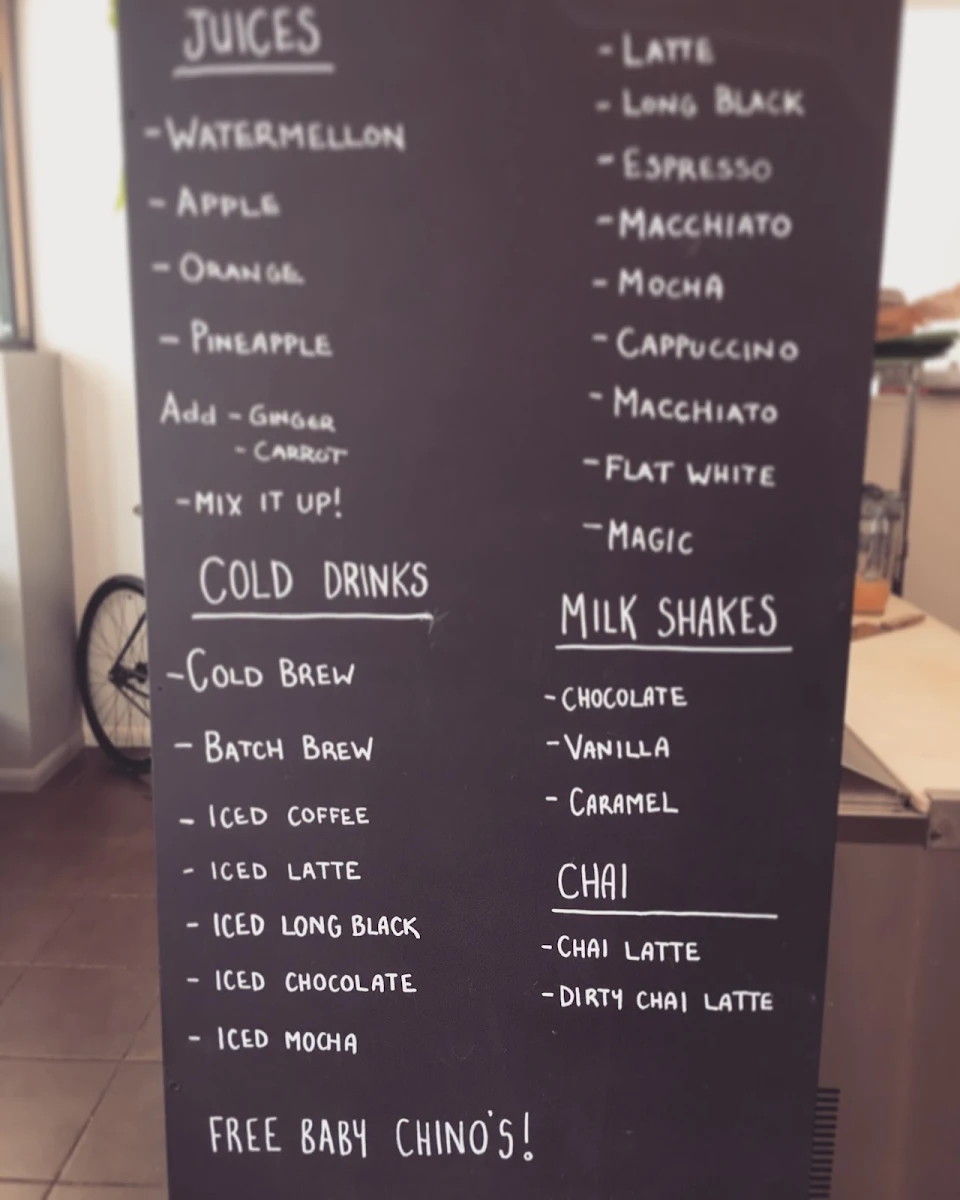 JUICES
- WATERMELLON
- APPLE
- ORANGE
- PINEAPPLE
Add - GINGER
- CARROT
- MIX IT UP!
COLD DRINKS
- COLD BREW
- BATCH BREW
- ICED COFFEE
- ICED LATTE
- ICED LONG BLACK
- ICED CHOCOLATE
- ICED MOCHA
FREE BABY CHINO'S!
- LATTE
- LONG BLACK
- ESPRESSO
- MACCHIATO
- MOCHA
- CAPPUCCINO
- MACCHIATO
- FLAT WHITE
- MAGIC
MILK SHAKES
- CHOCOLATE
- VANILLA
- CARAMEL
CHAI
- CHAI LATTE
- DIRTY CHAI LATTE